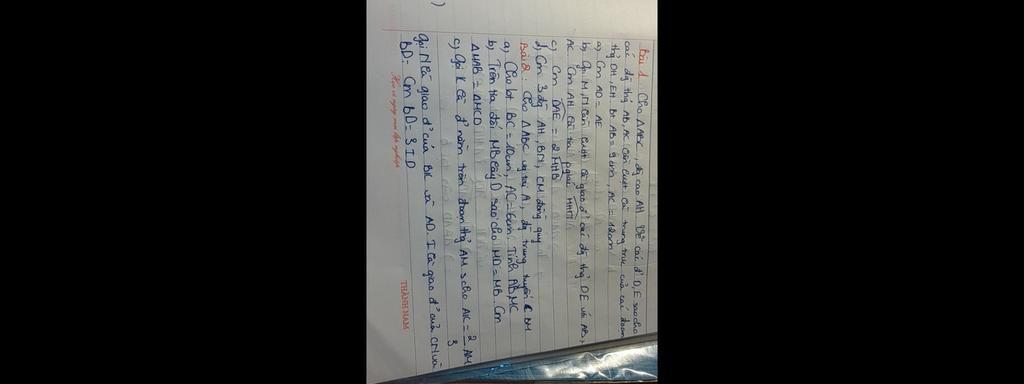 Bài 1. Cho ΔABC, đg cao AH. Vẽ các đ' D, E sao cho
các đg thg AB, AC lần lượt là trung trực của các đoạn
thg DH, EH. Bt AB = 9cm, AC = 12cm
a) Cm AD = AE
b) Gọi M, N lần lượt là giao đ' các đg thg DE với AB,
AC Cm AH là tia pgiác MHN
c) Cm DAE = 2 MHB
d) Cm 3 đg AH, BN, CM đồng quy
Bài 2. Cho ΔABC vg tại A, đg trung tuyến BM
a) Cho bt BC = 10cm, AC = 6cm. Tính AB, MC
b) Trên tia đối MB lấy D sao cho MD = MB. Cm
ΔMAB = ΔMCD
c) Gọi K là đ' nằm trên đoạn thg AM scho AK = 2/3 AM
gọi N là giao đ' của BK và AD. I là giao đ' của CN và
BD. Cm BD = 3 ID
THÀNH NAM